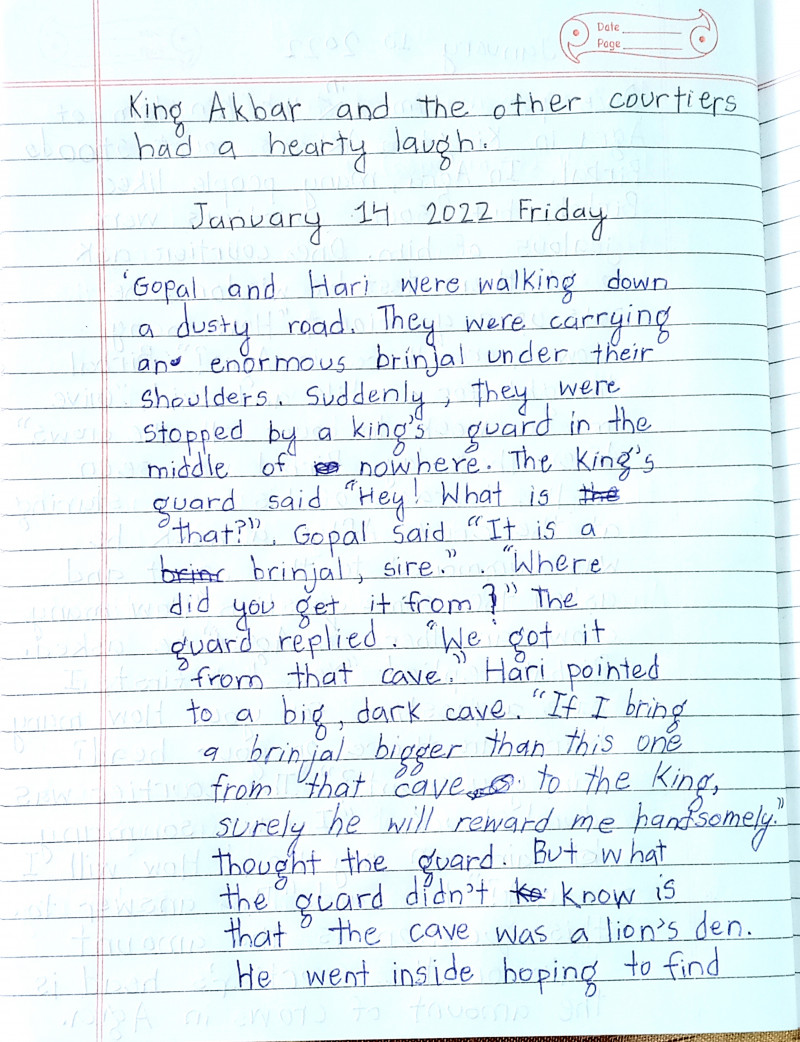 Date
Page
King Akbar and the other courtiers
had a hearty laugh.
January 14 2022 Friday
'Gopal and Hari were walking down
a dusty road. They were carrying
an enormous brinjal under their
shoulders. Suddenly, they were
stopped by a king's guard in the
middle of nowhere. The King's
guard said "Hey! What is the
that?". Gopal said "It is a
brinr brinjal, sire.". "Where
did you get it from?" The
guard replied. "We got it
from that cave." Hari pointed
to a big, dark cave. "If I bring
a brinjal bigger than this one
from that cave to the King,
surely he will reward me handsomely."
thought the guard. But what
the guard didn't ko know is
that the cave was a lion's den.
He went inside hoping to find